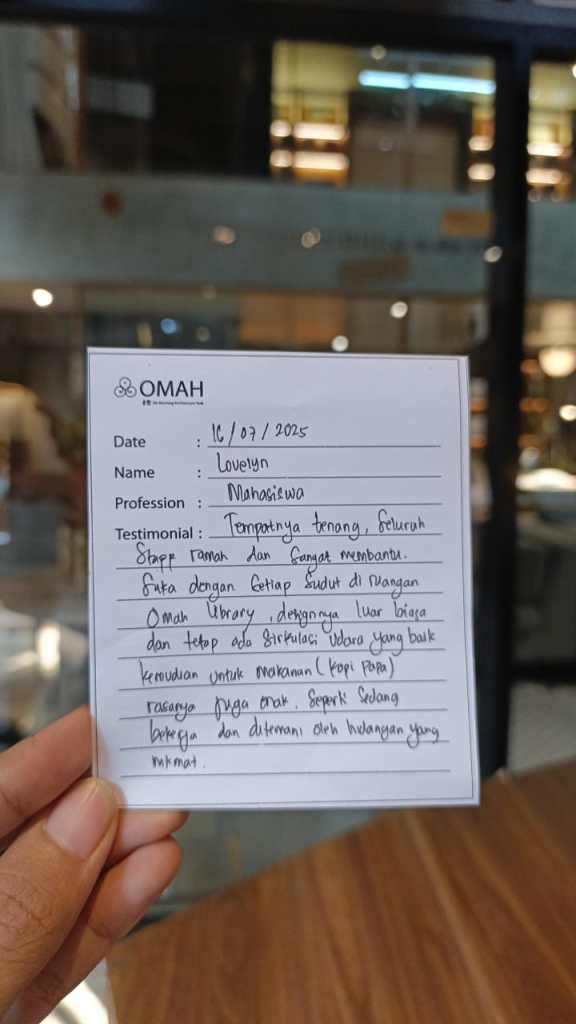 OMAH
Date : 16/07/2025
Name : Lovelyn
Profession : Mahasiswa
Testimonial : Tempatnya tenang, Seluruh
Staff ramah dan Sangat membantu.
Suka dengan Setiap Sudut di ruangan
Omah library, designnya luar biasa
dan tetap ada Sirkulasi udara yang baik
kemudian untuk makanan (kopi papa)
rasanya juga enak. Seperti Sedang
bekerja dan ditemani oleh hidangan yang
nikmat.